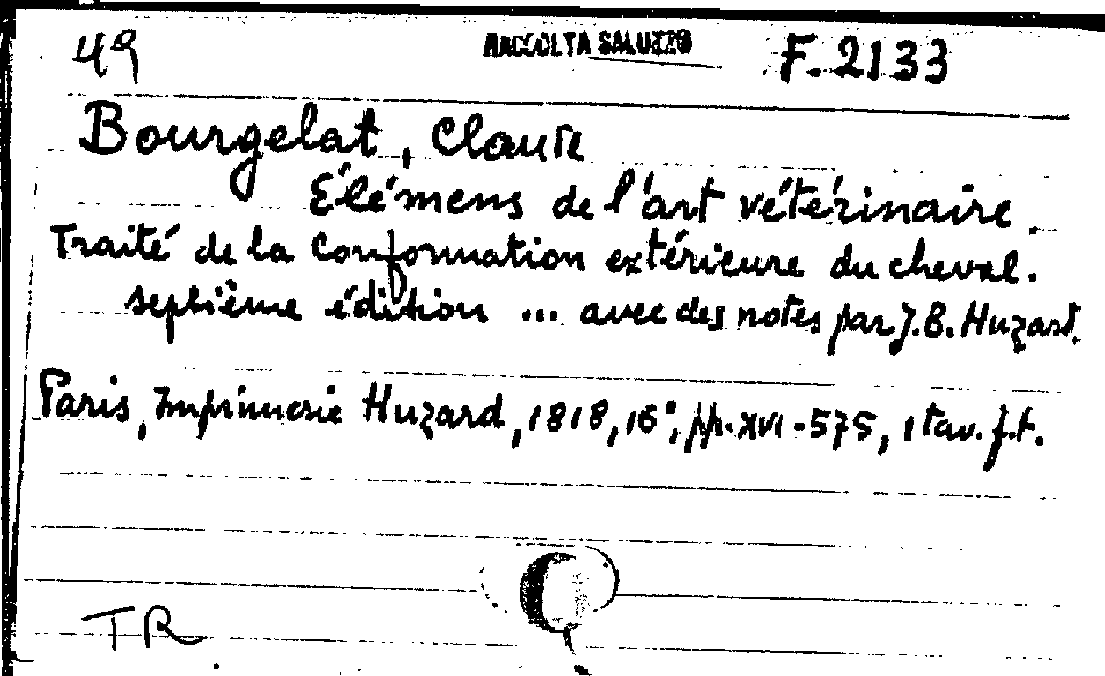 49 RACCOLTA SALUZZO F. 2133
Bourgelat, Claude
Élémens de l'art vétérinaire.
Traité de la conformation extérieure du cheval.
septième édition ... avec des notes par J.B. Huzard.
Paris, Imprimerie Huzard, 1818, 16°, pp. XVI-575, 1 tav. f.t.
TR